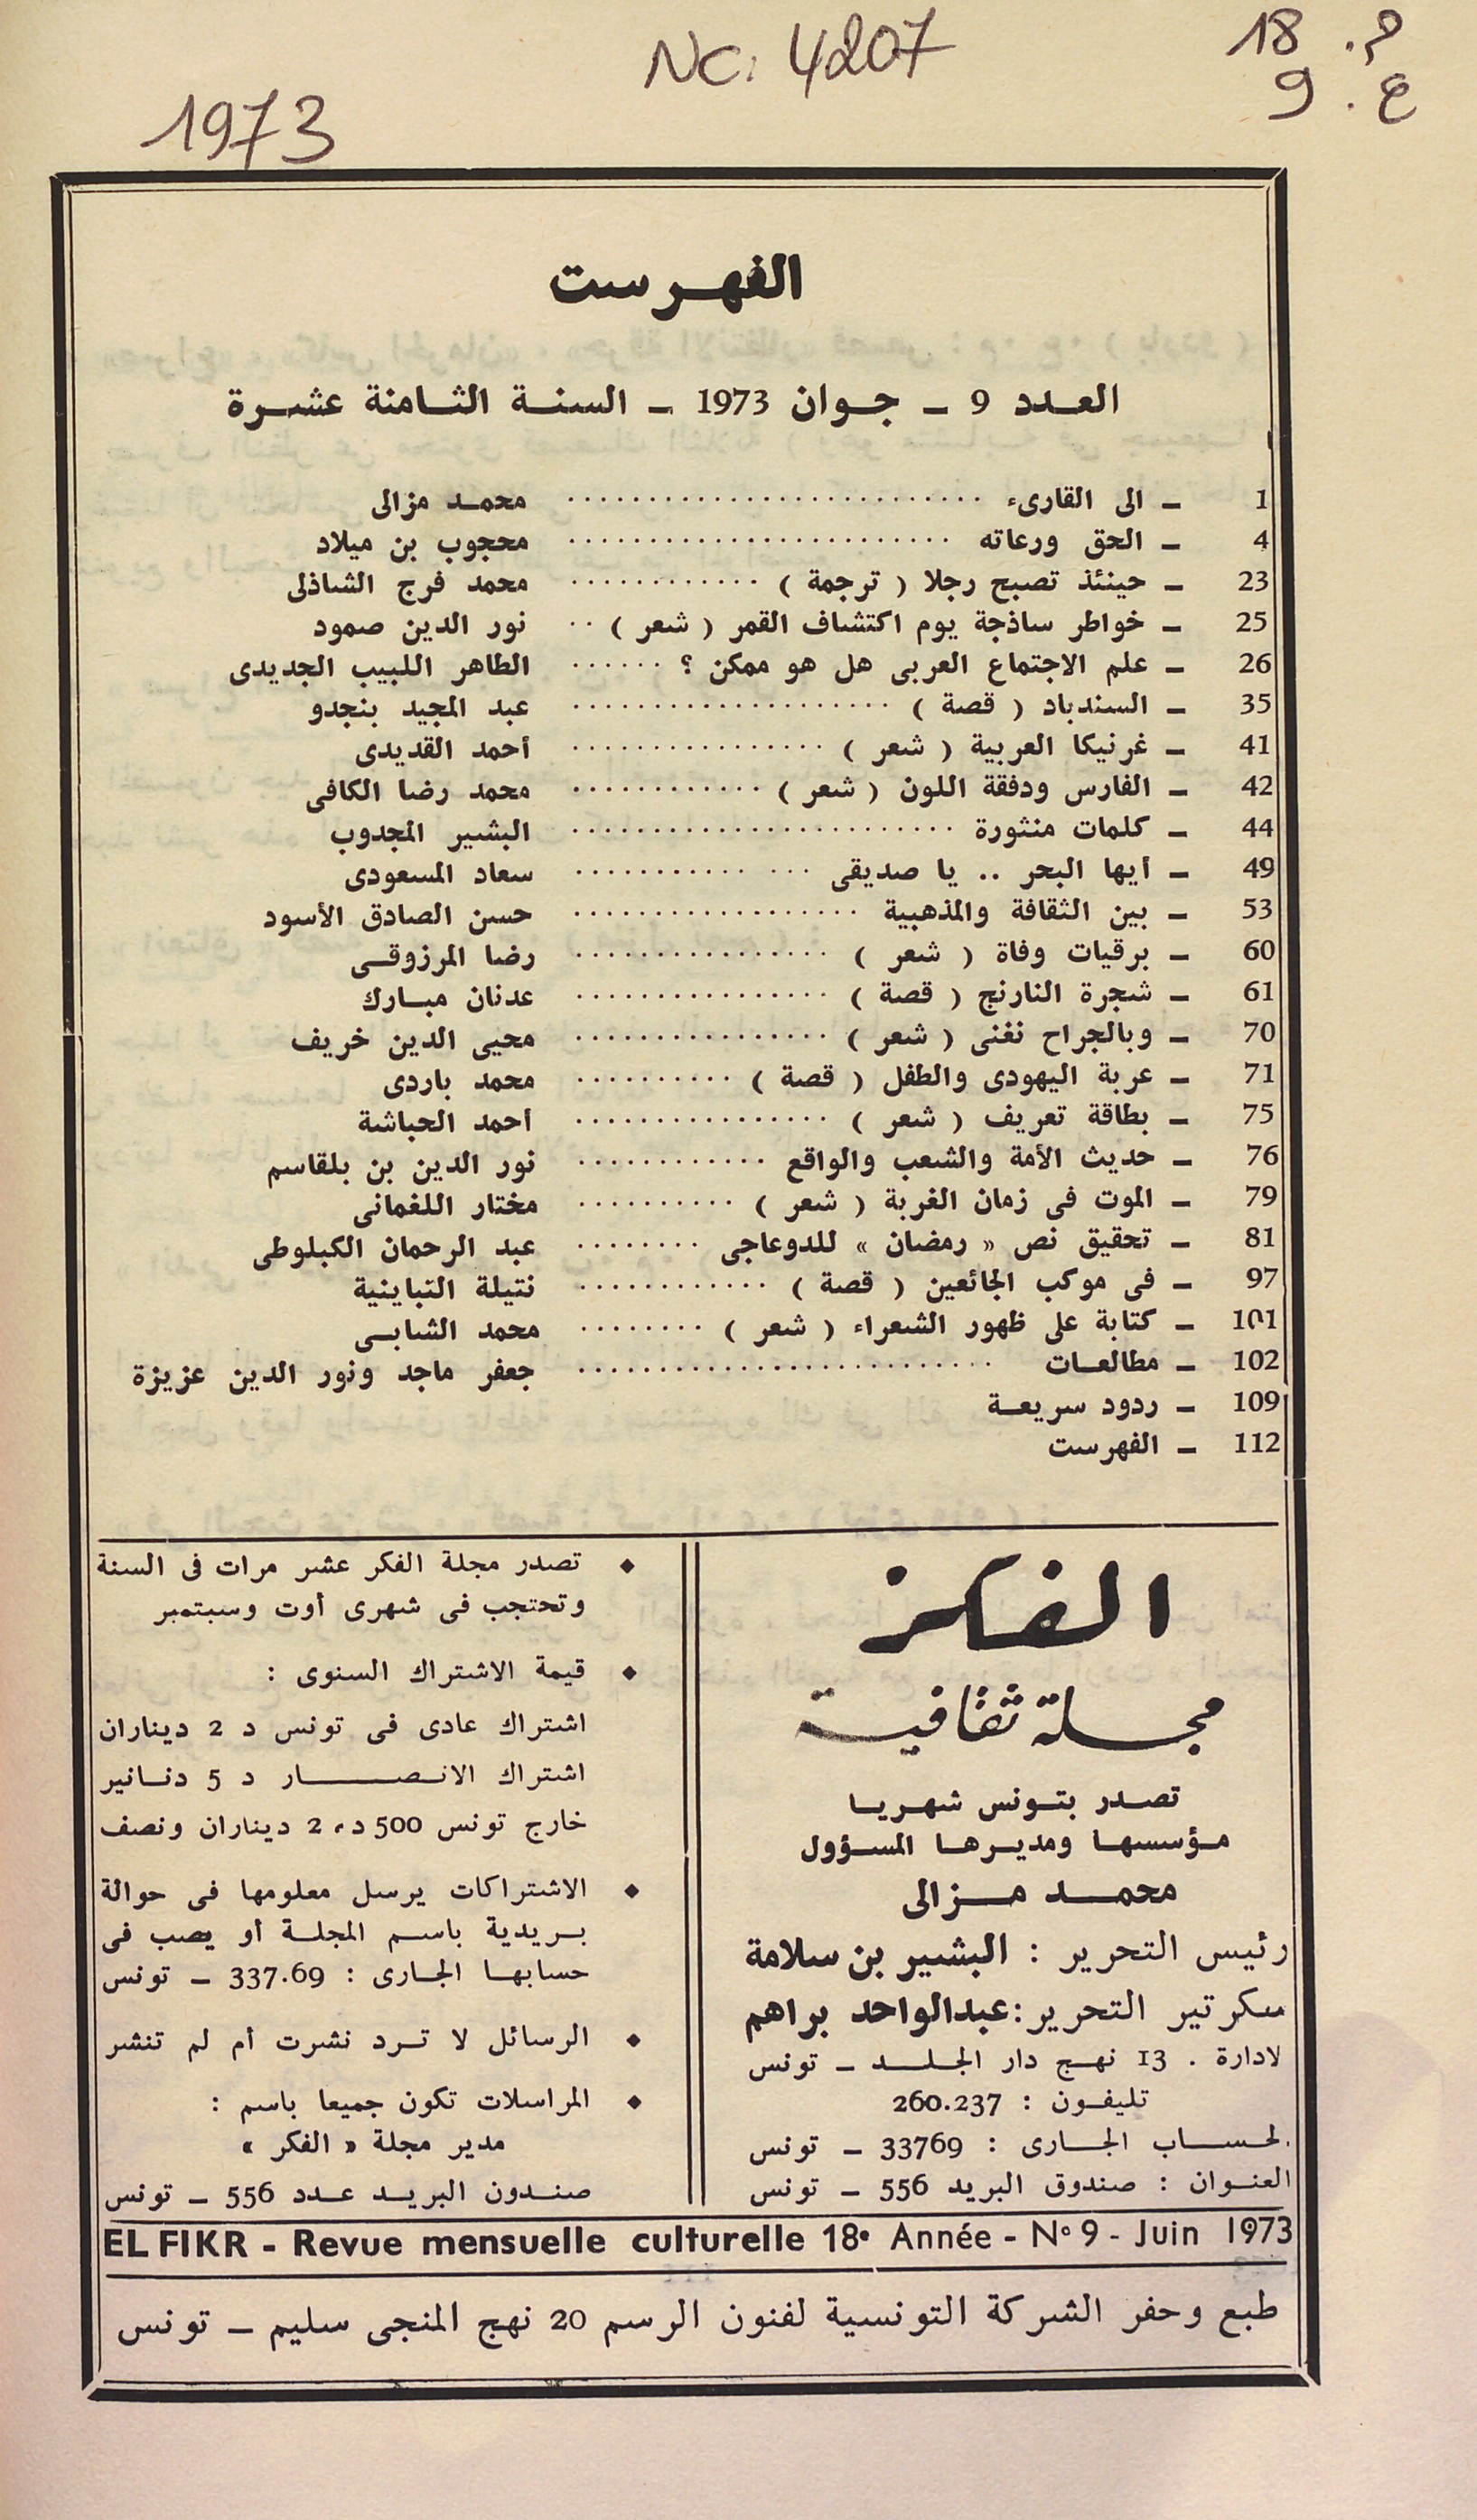 NC: 4207
18 م.
9 ع.
1973
الفهرست
العدد 9 ــ جوان 1973 ــ السنة الثامنة عشرة
1 ــ الى القارىء .......................... محمد مزالى
4 ــ الحق ورعاته ........................ محجوب بن ميلاد
23 ــ حينئذ تصبح رجلا ( ترجمة ) ............ محمد فرج الشاذلى
25 ــ خواطر ساذجة يوم اكتشاف القمر ( شعر ) .. نور الدين صمود
26 ــ علم الاجتماع العربى هل هو ممكن ؟ ...... الطاهر اللبيب الجديدى
35 ــ السندباد ( قصة ) .................... عبد المجيد بنجدو
41 ــ غرنيكا العربية ( شعر ) ................ أحمد القديدى
42 ــ الفارس ودفقة اللون ( شعر ) ............ محمد رضا الكافى
44 ــ كلمات منثورة ........................ البشير المجدوب
49 ــ أيها البحر .. يا صديقى .............. سعاد المسعودى
53 ــ بين الثقافة والمذهبية .................. حسن الصادق الأسود
60 ــ برقيات وفاة ( شعر ) ................ رضا المرزوقى
61 ــ شجرة النارنج ( قصة ) ................ عدنان مبارك
70 ــ وبالجراح نغنى ( شعر ) ................ محيى الدين خريف
71 ــ عربة اليهودى والطفل ( قصة ) .......... محمد باردى
75 ــ بطاقة تعريف ( شعر ) ................ أحمد الحباشة
76 ــ حديث الأمة والشعب والواقع ............ نور الدين بن بلقاسم
79 ــ الموت فى زمان الغربة ( شعر ) .......... مختار اللغمانى
81 ــ تحقيق نص « رمضان » للدوعاجى ........ عبد الرحمان الكبلوطى
97 ــ فى موكب الجائعين ( قصة ) ............ نتيلة التباينية
101 ــ كتابة على ظهور الشعراء ( شعر ) ........ محمد الشابى
102 ــ مطالعات .......................... جعفر ماجد ونور الدين عزيزة
109 ــ ردود سريعة
112 ــ الفهرست
الفكر
مجلة ثقافية
تصدر بتونس شهريا
مؤسسها ومديرها المسؤول
محمد مزالى
رئيس التحرير : البشير بن سلامة
سكرتير التحرير : عبدالواحد براهم
لادارة . 13 نهج دار الجلد ــ تونس
تليفون : 260.237
لحساب الجارى : 33769 ــ تونس
العنوان : صندوق البريد 556 ــ تونس
◆ تصدر مجلة الفكر عشر مرات فى السنة
وتحتجب فى شهرى أوت وسبتمبر
◆ قيمة الاشتراك السنوى :
اشتراك عادى فى تونس د 2 ديناران
اشتراك الانصار د 5 دنانير
خارج تونس 500 د، 2 ديناران ونصف
◆ الاشتراكات يرسل معلومها فى حوالة
بريدية باسم المجلة أو يصب فى
حسابها الجارى : 337.69 ــ تونس
◆ الرسائل لا ترد نشرت أم لم تنشر
◆ المراسلات تكون جميعا باسم :
مدير مجلة « الفكر »
صندون البريد عدد 556 ــ تونس
EL FIKR - Revue mensuelle culturelle 18e Année - N° 9 - Juin 1973
طبع وحفر الشركة التونسية لفنون الرسم 20 نهج المنجى سليم ــ تونس